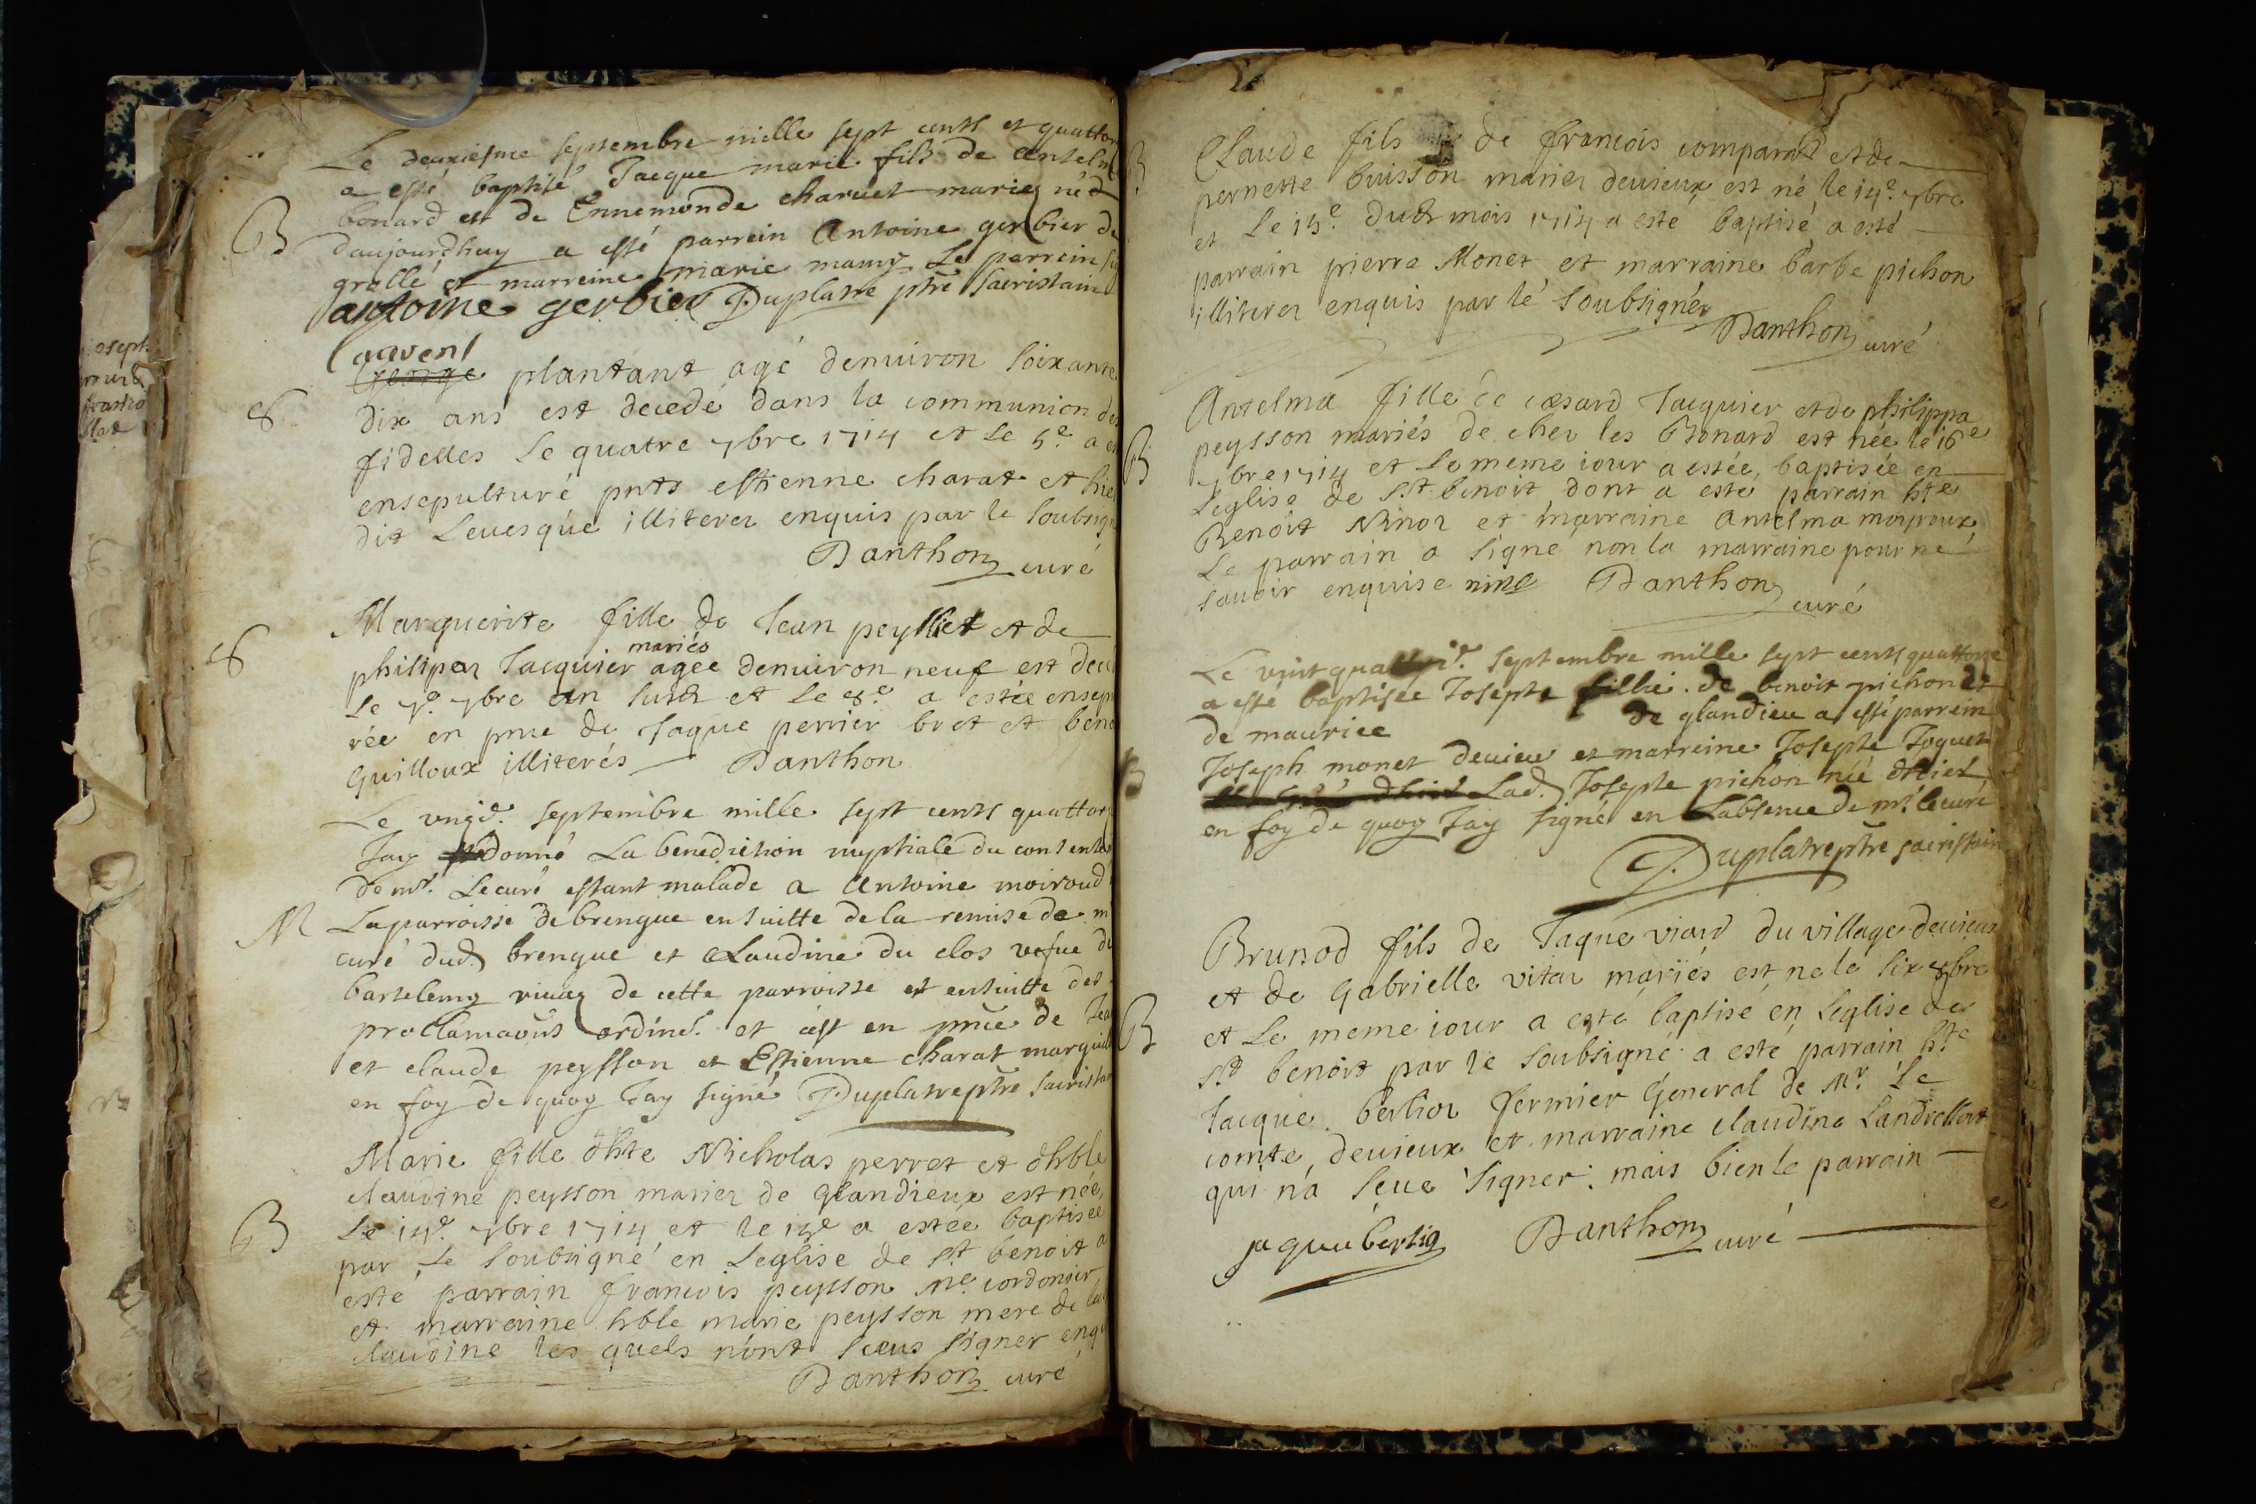 Le deuxiesme septembre mille sept cents et quattor
a esté baptisé Jacque marie fils de Antelm
B
bonard et de Ennemonde charuet mariez né d
daujourdhuy a esté parrein Antoine gerbier de
grollé et marreine marie mamy Le parrein
antoine gerbier Duplatre ptre sacristain
Lauvent
george plantant agé denuiron soixante
S
dix ans est decedé dans la communion des
fidelles le quatre 7bre 1714 et le 5e a es
ensepulturé pnts estienne charat et
dit Leuesque illiterez enquis par le soubsig
Danthon curé
Marguerite fille de Jean peyllet et de
mariés
S
philipaz Jacquier agée denuiron neuf est dec
le 7e 7bre an susd et le 8e a estée ensep
rée en pnce de Jaque perrier bret et beno
Guilloux illiterés Danthon
Le vnze septembre mille sept cents quattor
Jay donné La benediction nuptiale du consente
de mr. Le curé estant malade a Antoine moiroud
M
La parroisse de brengue ensuitte de la remise de m
curé dud brengue et Claudine du clos vefue de
bartelemy de cette parroisse et ensuitte des
proclamaons ordines. et cest en pnce de
et claude peysson et Estienne charat marguil
en foy de quoy Jay signé Duplatre ptre sacristain
Marie fille dhte Nicholas perret et dhble
claudine peysson mariez de Glandieux est née
B
Le 14e 7bre 1714 et le 15e a estée baptisée
par Le soubsigné en Leglise de St benoit a
esté parrain francois peysson Me cordonier
et marraine hble marie peysson mere de lad
claudine les quels n'ont sceus signer enq
Danthon curé
B
Claude fils de francois comparat et de
pernette buisson mariez deuieux est né le 14e 7bre
et Le 15e dud mois 1714 a esté baptisé a esté
parrain pierre Monet et marraine barbe pichon
illiterez enquis par le soubsignéz
Danthon curé
Antelma fille de cesard Jacquier et de philippa
B
peysson mariés de chez les Bonard est née le 16e
7bre 1714 et le meme iour a estée baptisée en
Leglise de St benoit dont a esté parrain hte
Benoit Ninoz et marraine Antelma moyroux
Le parrain a signé non la marraine pour ne
sauoir enquise Danthon
curé
Le vint septembre mille sept cents quattorze
a esté baptisée Josephe fillie de benoit pichon et
de maurice de glandieu a esté parrein
B
Joseph monet deuieu et marreine Josephe Joquet
Lad. Josephe pichon née dhier
en foy de quoy Jay signé en Labsence de mr. le curé
Duplatre ptre sacristain
Brunod fils de Jaque viard du village deuieux
et de Gabrielle vitaz mariés est né le six 8bre
B
et Le meme iour a esté baptisé en Leglise de
St benoit par le soubsigné a esté parrain hte
Jacque berlioz fermier General de Mr. Le
comte deuieux et marraine claudine Landrellat
qui n'a seue signer mais bien le parrain
jaque berlio Danthon curé